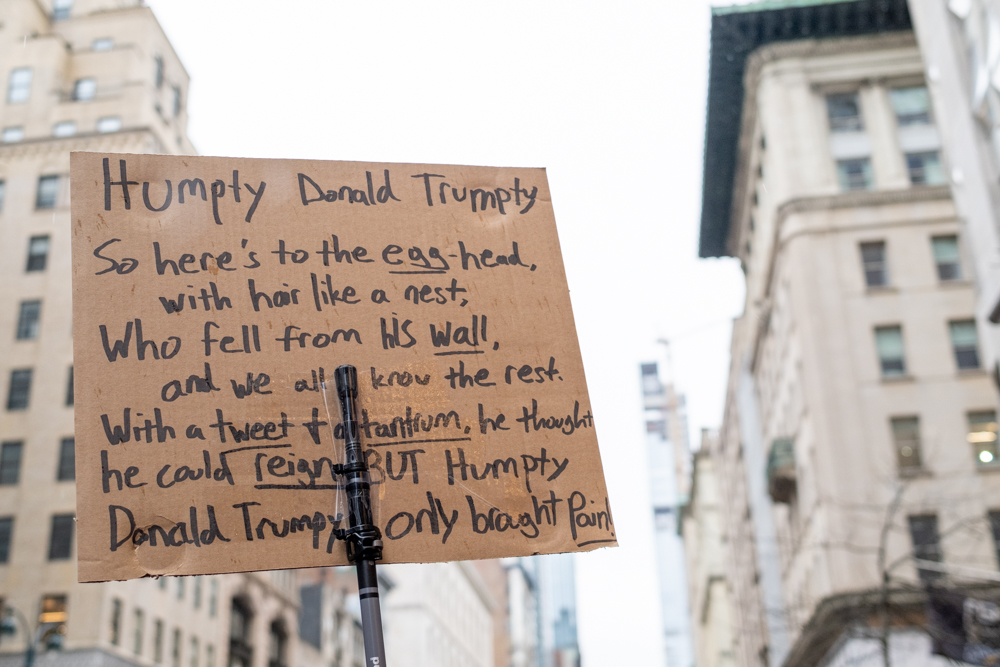 Humpty Donald Trumpty
So here's to the egg-head,
with hair like a nest,
Who fell from his wall,
and we all know the rest.
With a tweet + a tantrum, he thought
he could reign BUT Humpty
Donald Trumpy only brought Pain!